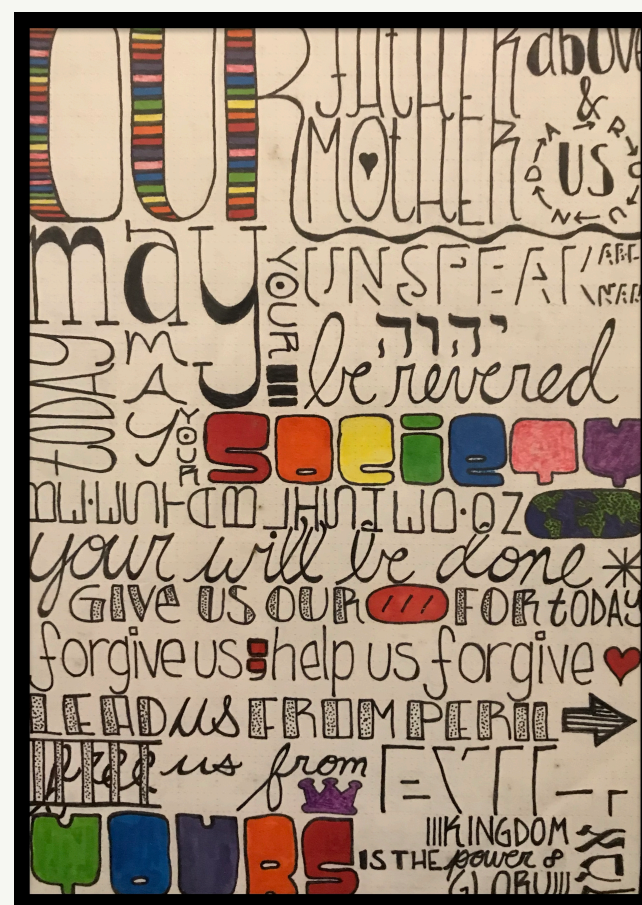 OUR FATHER above
& MOTHER
AROUND US
may YOUR UNSPEA
יהוה
be revered
TODAY MAY YOUR society
your will be done *
GIVE US OUR FOR tODAY
forgive us help us forgive
LEAD us FROM PERIL
free us from EVIL
YOURS IS THE KINGDOM
power &
GLORY